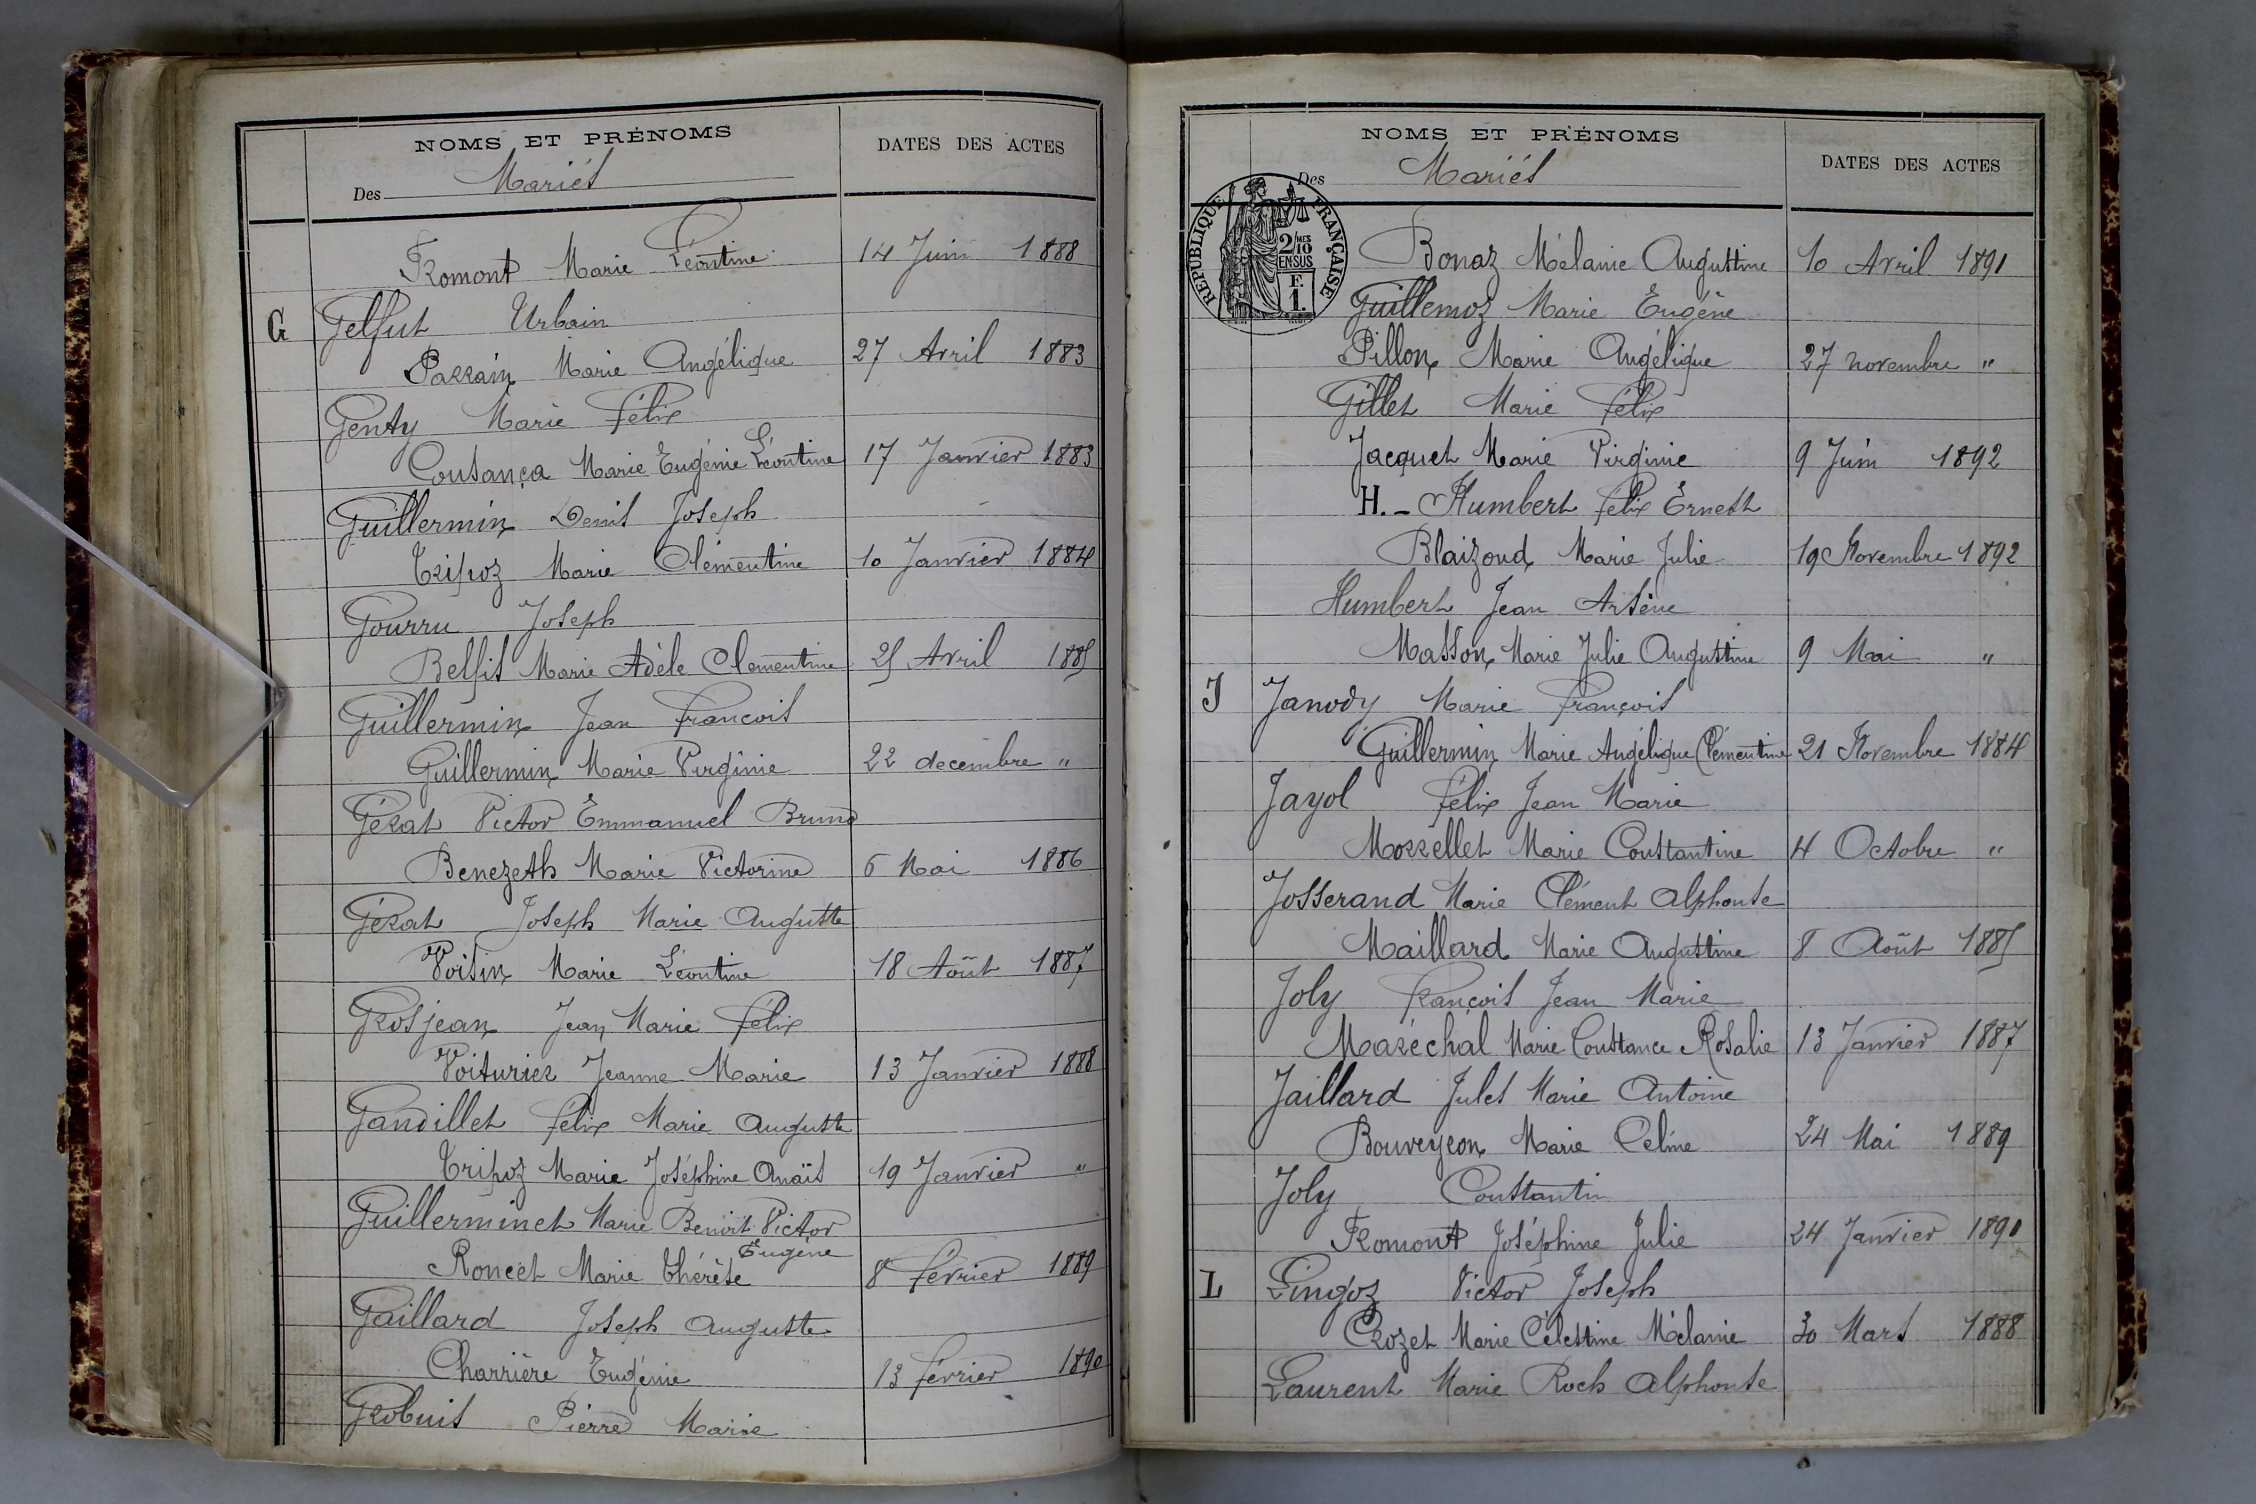 NOMS ET PRÉNOMS
DATES DES ACTES
Des Mariés
Fromont Marie Léontine 14 Juin 1888
G Gelfut Urbain
Parrain Marie Angélique 27 Avril 1883
Genty Marie Félix
Cousança Marie Eugénie Léontine 17 Janvier 1883
Guillermin Denis Joseph
Tripoz Marie Clémentine 10 Janvier 1884
Gourru Joseph
Belfis Marie Adèle Clementine 25 Avril 1885
Guillermin Jean François
Guillermin Marie Virginie 22 decembre "
Gérat Victor Emmanuel Bruno
Benezeth Marie Victorine 6 Mai 1886
Gérat Joseph Marie Auguste
Voisin Marie Léontine 18 Août 1887
Grosjean Jean Marie Félix
Voiturier Jeanne Marie 13 Janvier 1888
Gandillet Félix Marie Auguste
Tripoz Marie Joséphine Anaïs 19 Janvier "
Guillerminet Marie Benoit Victor
Eugène
Roncet Marie Thérèse 8 février 1889
Gaillard Joseph Auguste
Charrière Eugénie 13 février 1890
Grobuis Pierre Marie
NOMS ET PRÉNOMS
DATES DES ACTES
Des Mariés
RÉPUBLIQUE FRANÇAISE
2/10 MES
EN SUS
F.
1.
Bonaz Mélanie Augustine 10 Avril 1891
Guillemoz Marie Eugène
Pillon Marie Angélique 27 novembre "
Gillet Marie Félix
Jacquet Marie Virginie 9 Juin 1892
H. - Humbert Félix Ernest
Blaizoud Marie Julie 19 Novembre 1892
Humbert Jean Arsène
Masson Marie Julie Augustine 9 Mai "
J Janody Marie François
Guillermin Marie Angélique Clémentine 21 Novembre 1884
Jayol Félix Jean Marie
Morrellet Marie Constantine 4 Octobre "
Josserand Marie Clément Alphonse
Maillard Marie Augustine 8 Août 1885
Joly François Jean Marie
Maréchal Marie Constance Rosalie 13 Janvier 1887
Jaillard Jules Marie Antoine
Bouveyeon Marie Celine 24 Mai 1889
Joly Constantin
Fromont Joséphine Julie 24 Janvier 1890
L Lingoz Victor Joseph
Crozet Marie Célestine Mélanie 30 Mars 1888
Laurent Marie Roch Alphonse